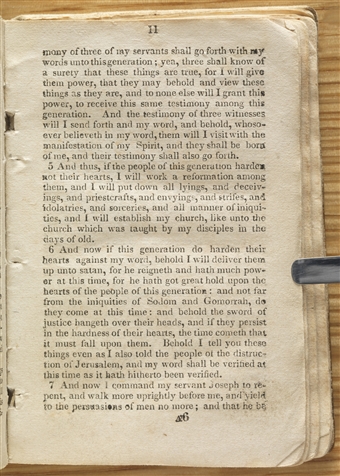 11
mony of three of my servants shall go forth with my
words unto this generation; yea, three shall know of
a surety that these things are true, for I will give
them power, that they may behold and view these
things as they are, and to none else will I grant this
power, to receive this same testimony among this
generation. And the testimony of three witnesses
will I send forth and my word, and behold, whoso-
ever believeth in my word, them will I visit with the
manifestation of my Spirit, and they shall be born
of me, and their testimony shall also go forth.
5 And thus, if the people of this generation harden
not their hearts, I will work a reformation among
them, and I will put down all lyings, and deceiv-
ings, and priestcrafts, and envyings, and strifes, and
idolatries, and sorceries, and all manner of iniqui-
ties, and I will establish my church, like unto the
church which was taught by my disciples in the
days of old.
6 And now if this generation do harden their
hearts against my word, behold I will deliver them
up unto satan, for he reigneth and hath much pow-
er at this time, for he hath got great hold upon the
hearts of the people of this generation: and not far
from the iniquities of Sodom and Gomorrah, do
they come at this time: and behold the sword of
justice hangeth over their heads, and if they persist
in the hardness of their hearts, the time cometh that
it must fall upon them. Behold I tell you these
things even as I also told the people of the distruc-
tion of Jerusalem, and my word shall be verified at
this time as it hath hitherto been verified.
7 And now I command my servant Joseph to re-
pent, and walk more uprightly before me, and yield
to the persuasions of men no more; and that he be